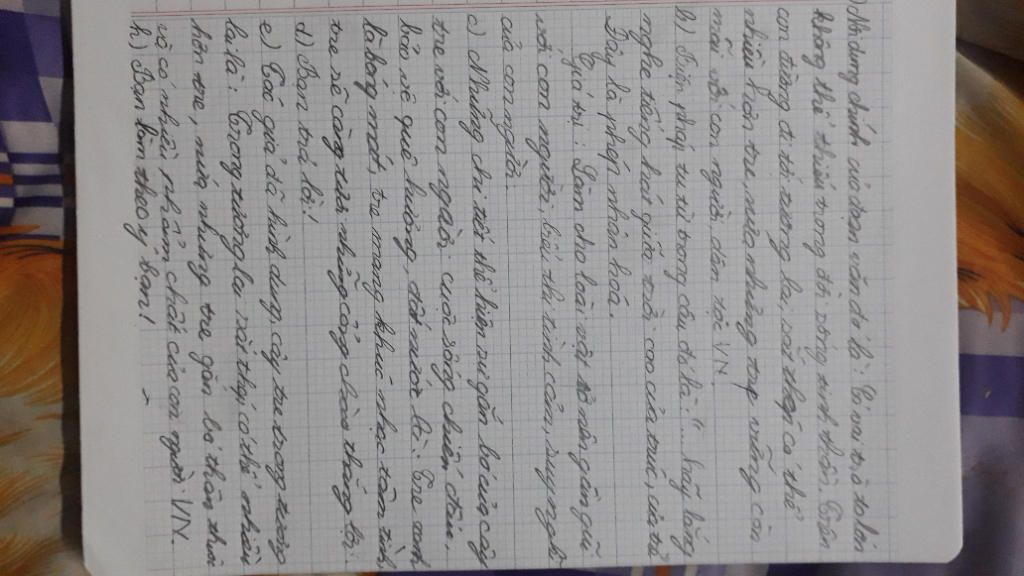 ) Nội dung chính của đoạn văn đó là: Có vai trò to lớn
không thể thiếu trong đời sống tinh thần. Trên
con đường đi tới tương lai, sắt thép có thể
nhiều hơn tre, nứa nhưng tre vẫn còn
mãi với con người, dân tộc VN.
b) Biện pháp tu từ trong câu đó là: "... hãy lắng
nghe tiếng hát giữa trời cao của trúc, của tre
Đây là phép nhân hóa.
Giá trị: Làm cho loài vật trở nên gần gũi
với con người, biểu thị tình cảm, suy nghĩ
của con người.
c) Những chi tiết thể hiện sự gắn bó của cây
tre với con người, cuộc sống chiến đấu,
bảo vệ quê hương, đất nước là: Tre xanh
là bóng mát, tre mang khúc nhạc tâm tình,
tre sẽ càng tươi những cổng chào thắng lợi.
d) Bạn trả lời!
e) Tác giả đã hình dung cây tre trong tương
lai là: Trong tương lai sắt thép có thể nhiều
hơn tre, nứa, nhưng tre gắn bó thân thiết
và có nhiều phẩm chất của con người VN.
h) Bạn làm theo ý bạn!